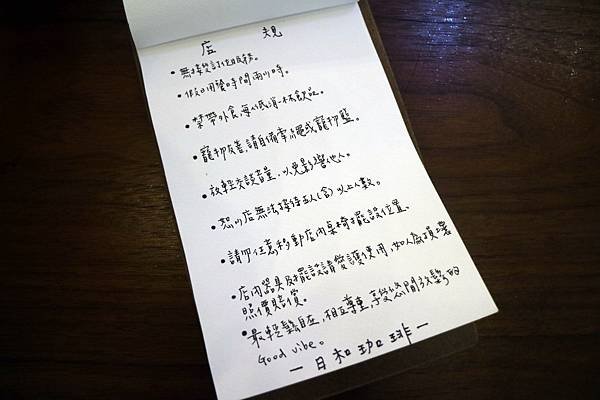 店 規
• 無接受訂位服務。
• 假日用餐時間兩小時。
• 禁帶外食，每人低消一杯飲品。
• 寵物友善，請自備牽繩或寵物籃。
• 放輕交談音量，以免影響他人。
• 恕小店無法接待五人(含)以上人數。
• 請勿任意移動店內桌椅擺設位置。
• 店內器具及擺設請愛護使用，如人為損壞
照價賠償。
• 最輕鬆自在，相互尊重，享受悠閒放鬆的
Good vibe。
— 日和珈琲 —